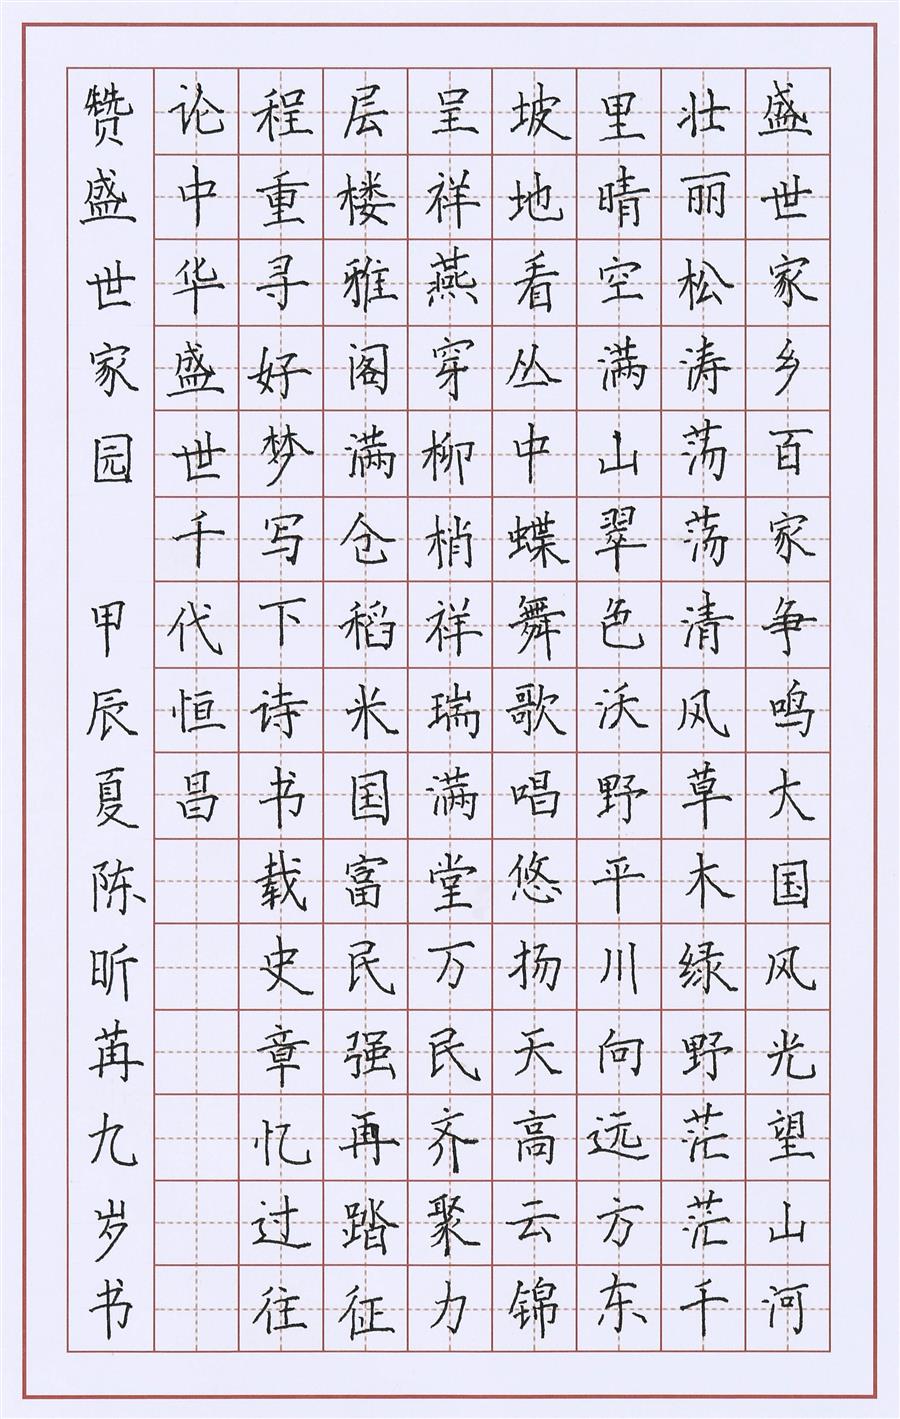 盛世家乡百家争鸣大国风光望山河
壮丽松涛荡荡清风草木绿野茫茫千
里晴空满山翠色沃野平川向远方东
坡地看丛中蝶舞歌唱悠扬天高云锦
呈祥燕穿柳梢祥瑞满堂万民齐聚力
层楼雅阁满仓稻米国富民强再踏征
程重寻好梦写下诗书载史章忆过往
论中华盛世千代恒昌
赞盛世家园 甲辰夏陈昕苒九岁书